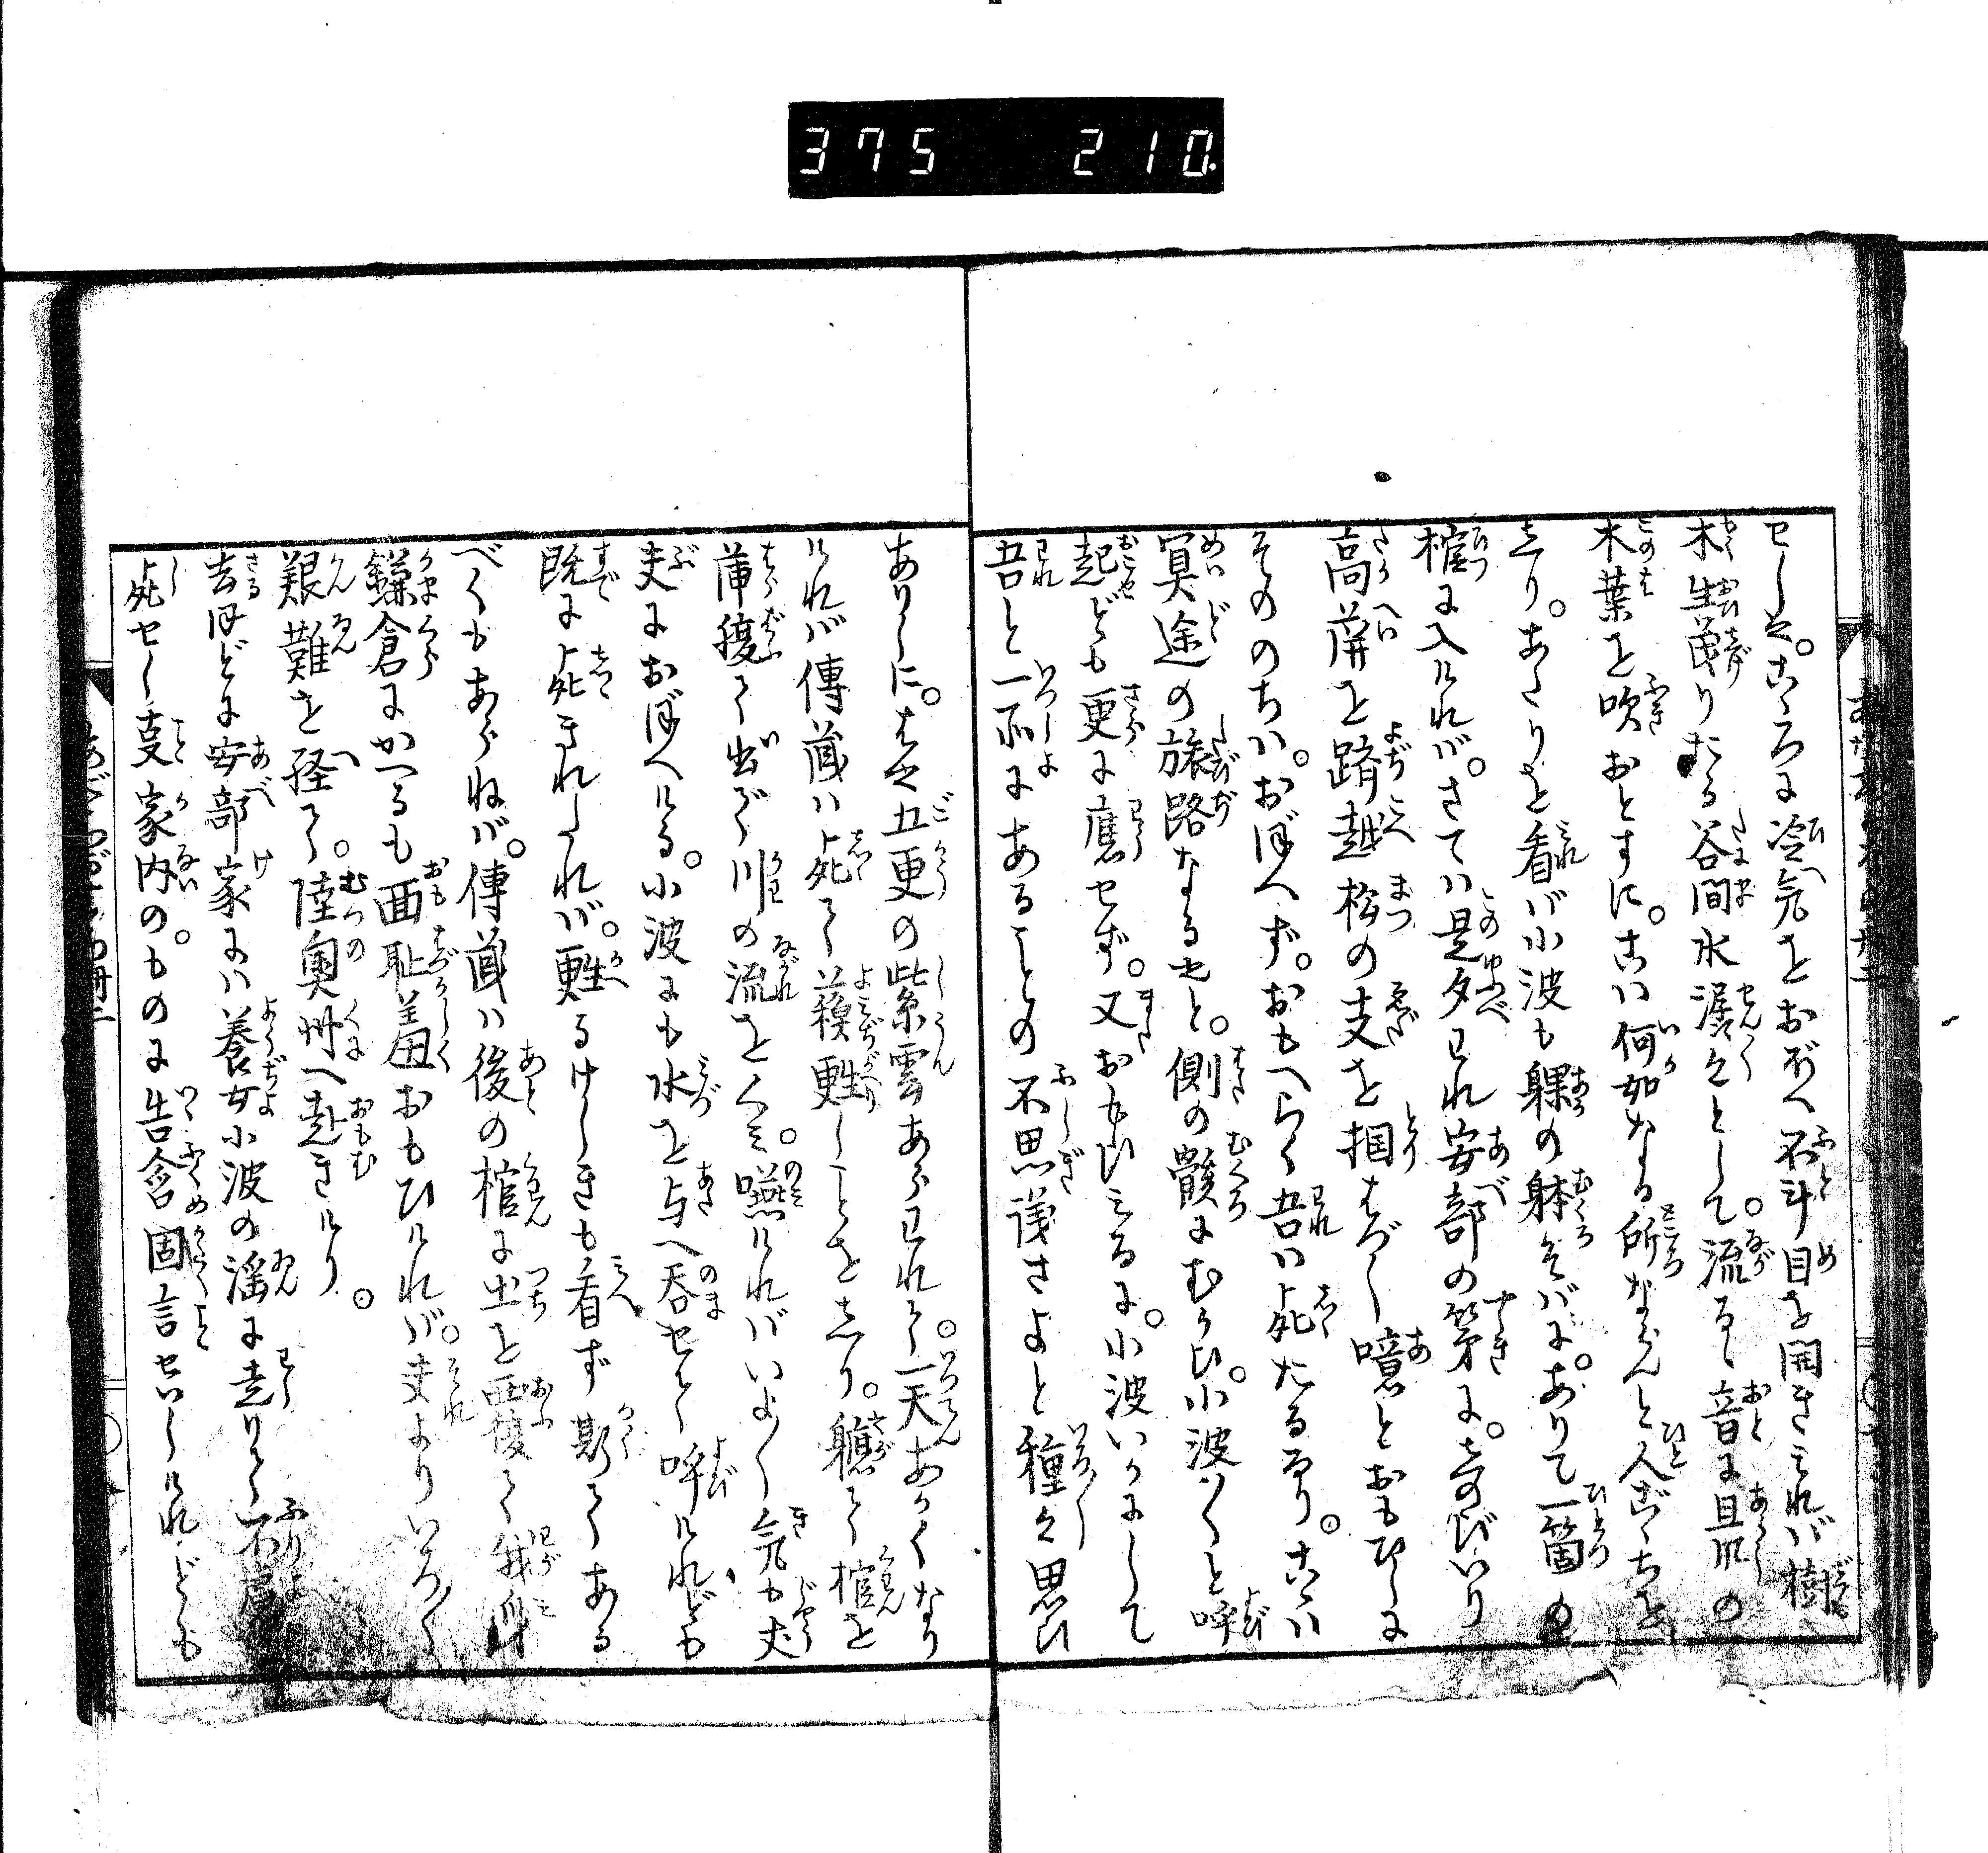 375 210
せしに。こゝろに冷気をおぼへ不斗目を開きみれバ樹
木生茂りたる谷間水潺々として。流るゝ音に且川の
木葉を吹おとすに。こハ何如なる所ならんと人ごゝちを
しり。あたりを看バ小波も躶の躰そバに。ありて一箇の
棺に入けれバ。さてハ是夕われ安部の第に。しのびいり
高屏を踰越松の支を掴はづし噫とおもひしに
そのゝちハ。おぼへず。おもへらく吾ハ死たるなり。こゝハ
冥途の旅路なるやと。側の骸にむかひ。小波〳〵と呼
起どもも更に應せず。又おもひみるに。小波いかにして
吾と一所にあることの不思議さよと種々思ひ
ありしに。はや五更の紫雲あらわれて。一天あかくなり
けれバ傳蔵ハ死て蘓甦しことをしり。軈て棺を
葡蔔て出でゝ川の流をくミ。嚥けれバいよ〳〵気も丈
夫におぼへける。小波にも水を与へ呑せて呼けれども
既に死きれたれバ。甦るけしきも看ず斯てある
べくもあらねバ。傳蔵ハ後の棺に土を覆て我身
鎌倉にかへるも面耻羞おもひけれバ。夫よりいろ〳〵
艱難を経て。陸奥州へ赴きけり。
去ほどに安部家にハ養女小波の滛に走りて不慮
死せし支家内の。ものに告含固言せいしけれども